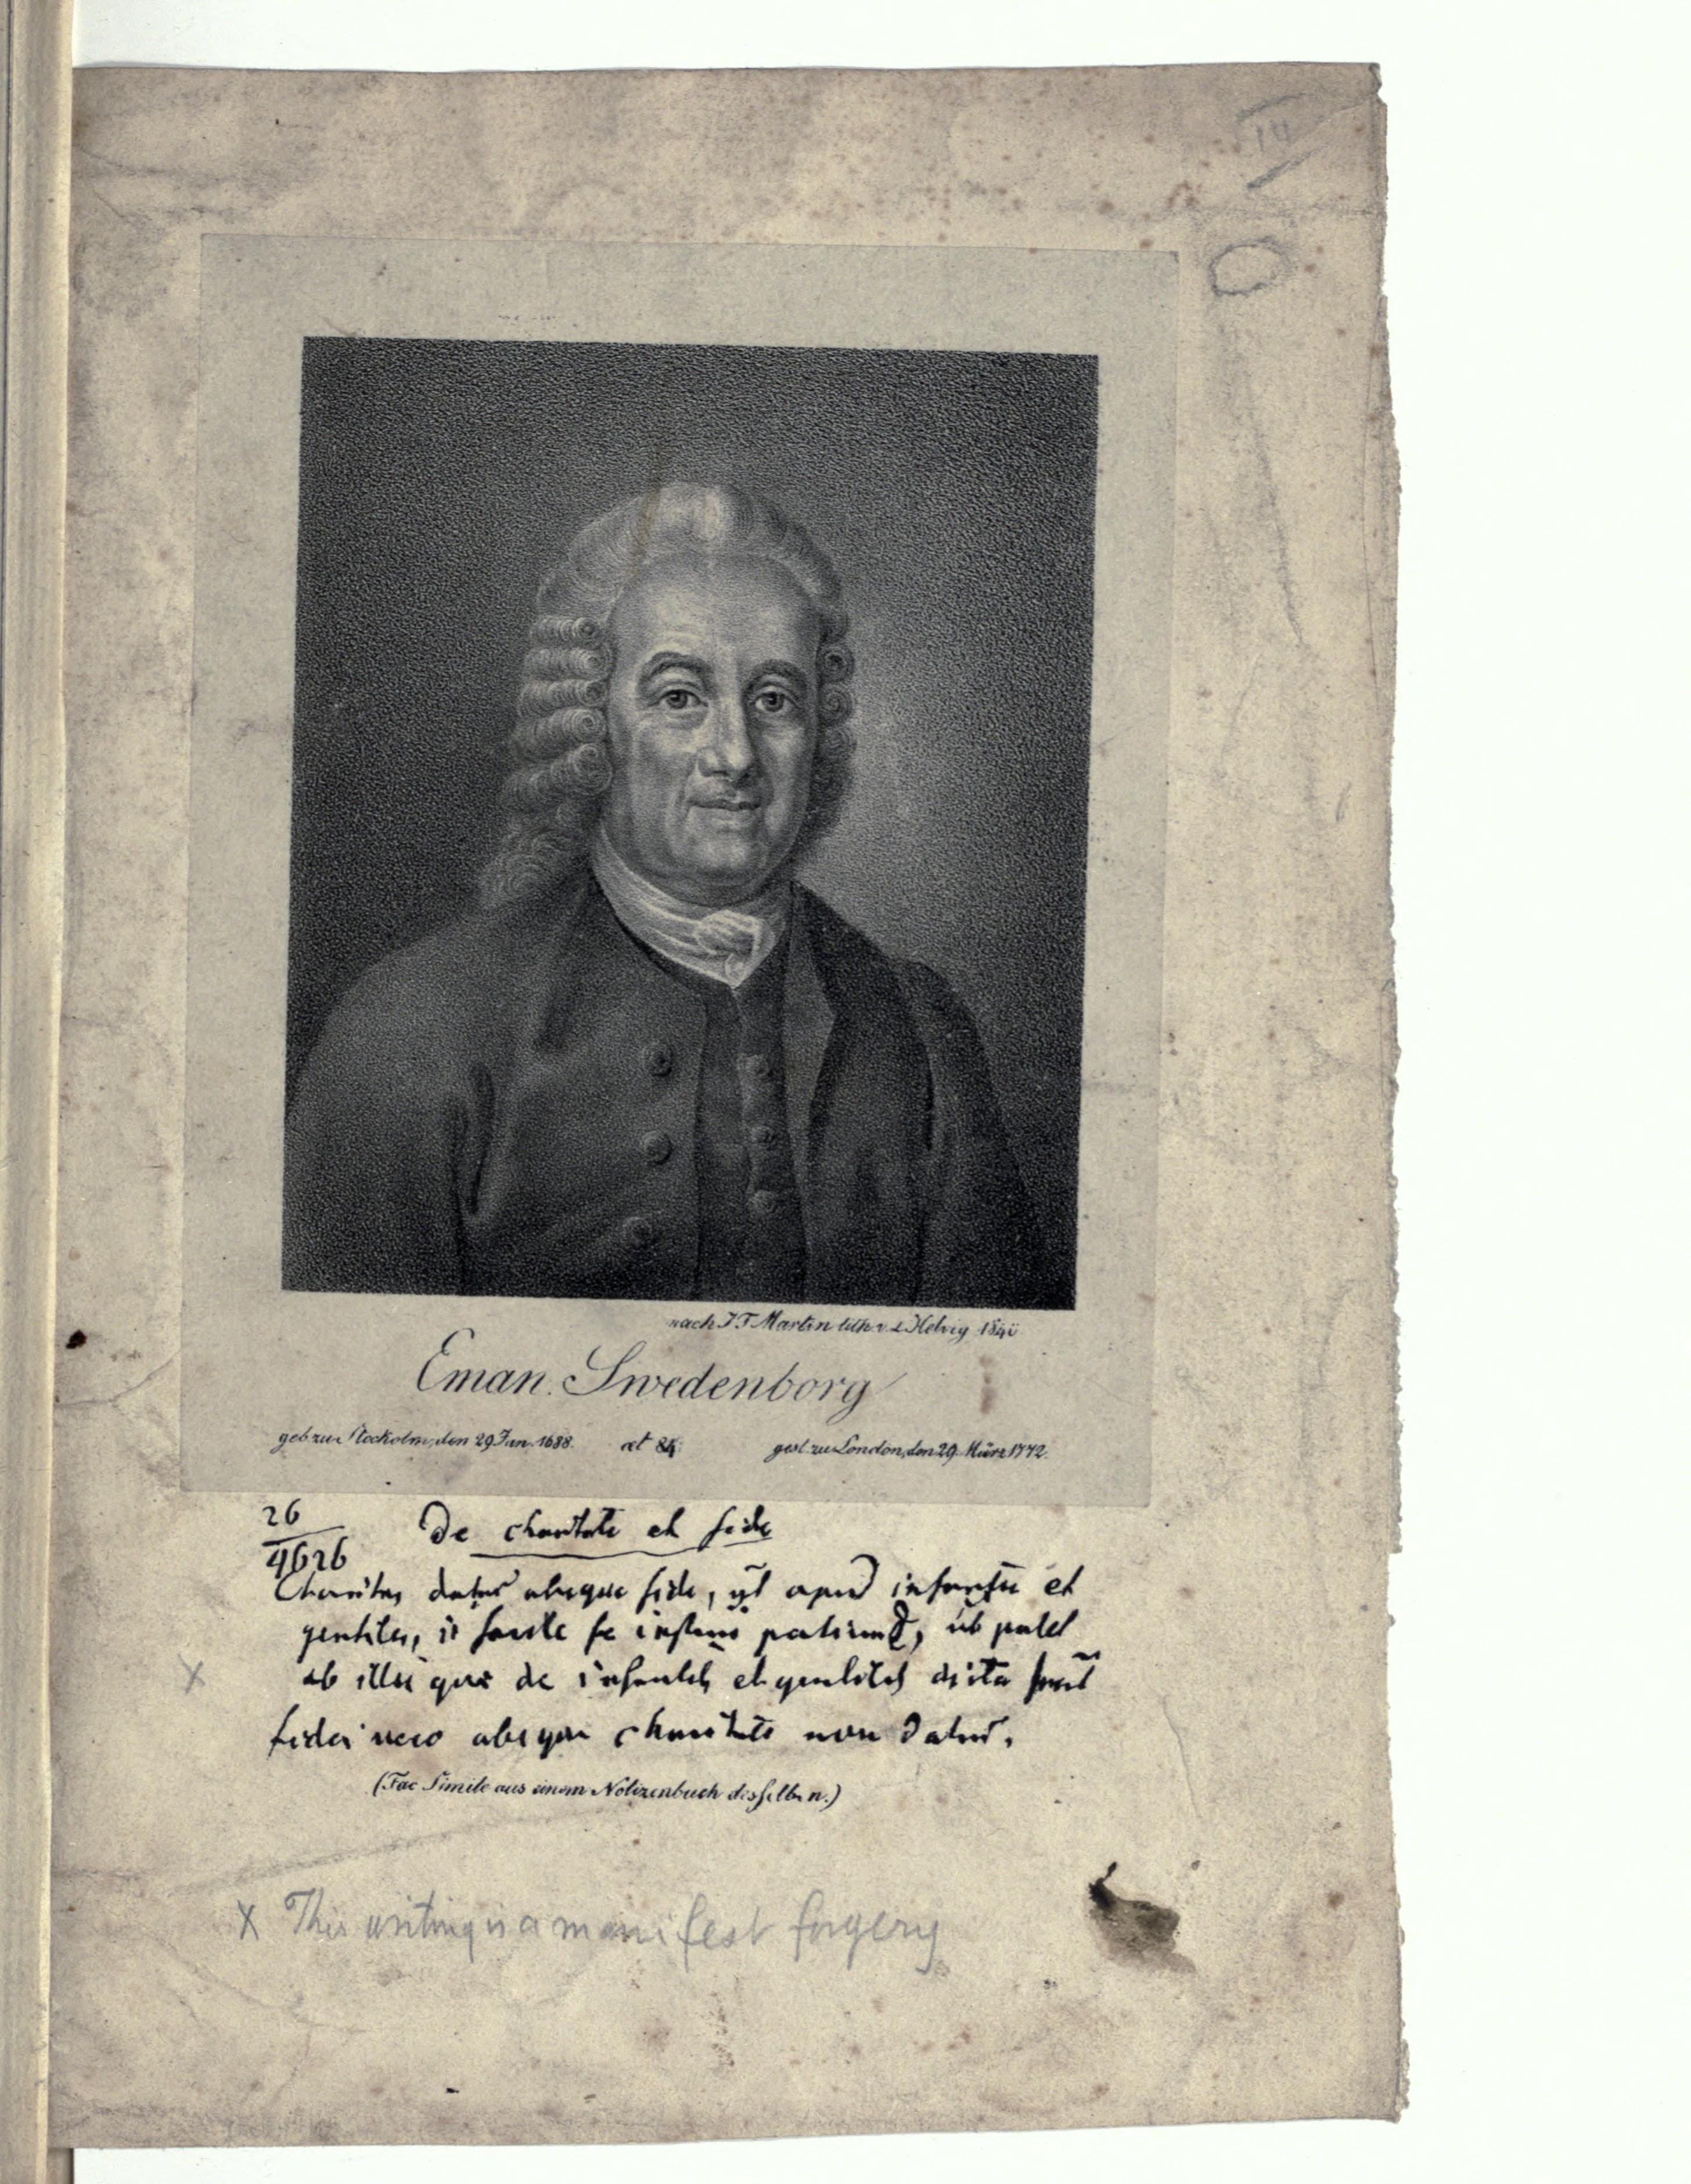 nach J F Martin lith. v. L Helvig 184
Eman. Swedenborg
geb zu Stockolm, den 29 Jan. 1688. æt 84. gest. zu London, den 29. März 1772.
26
4626
De charitate et fide
Charitas datur absque fide, ut apud infantes et
gentiles, is facile se patiunt, ut patet
ab illis quæ de infantib et gentilibus dicta sunt
fides vero absque charitate non datur.
(Fac Simile aus einem Notizenbuch desselben.)
X
X This writing is a manifest forgery